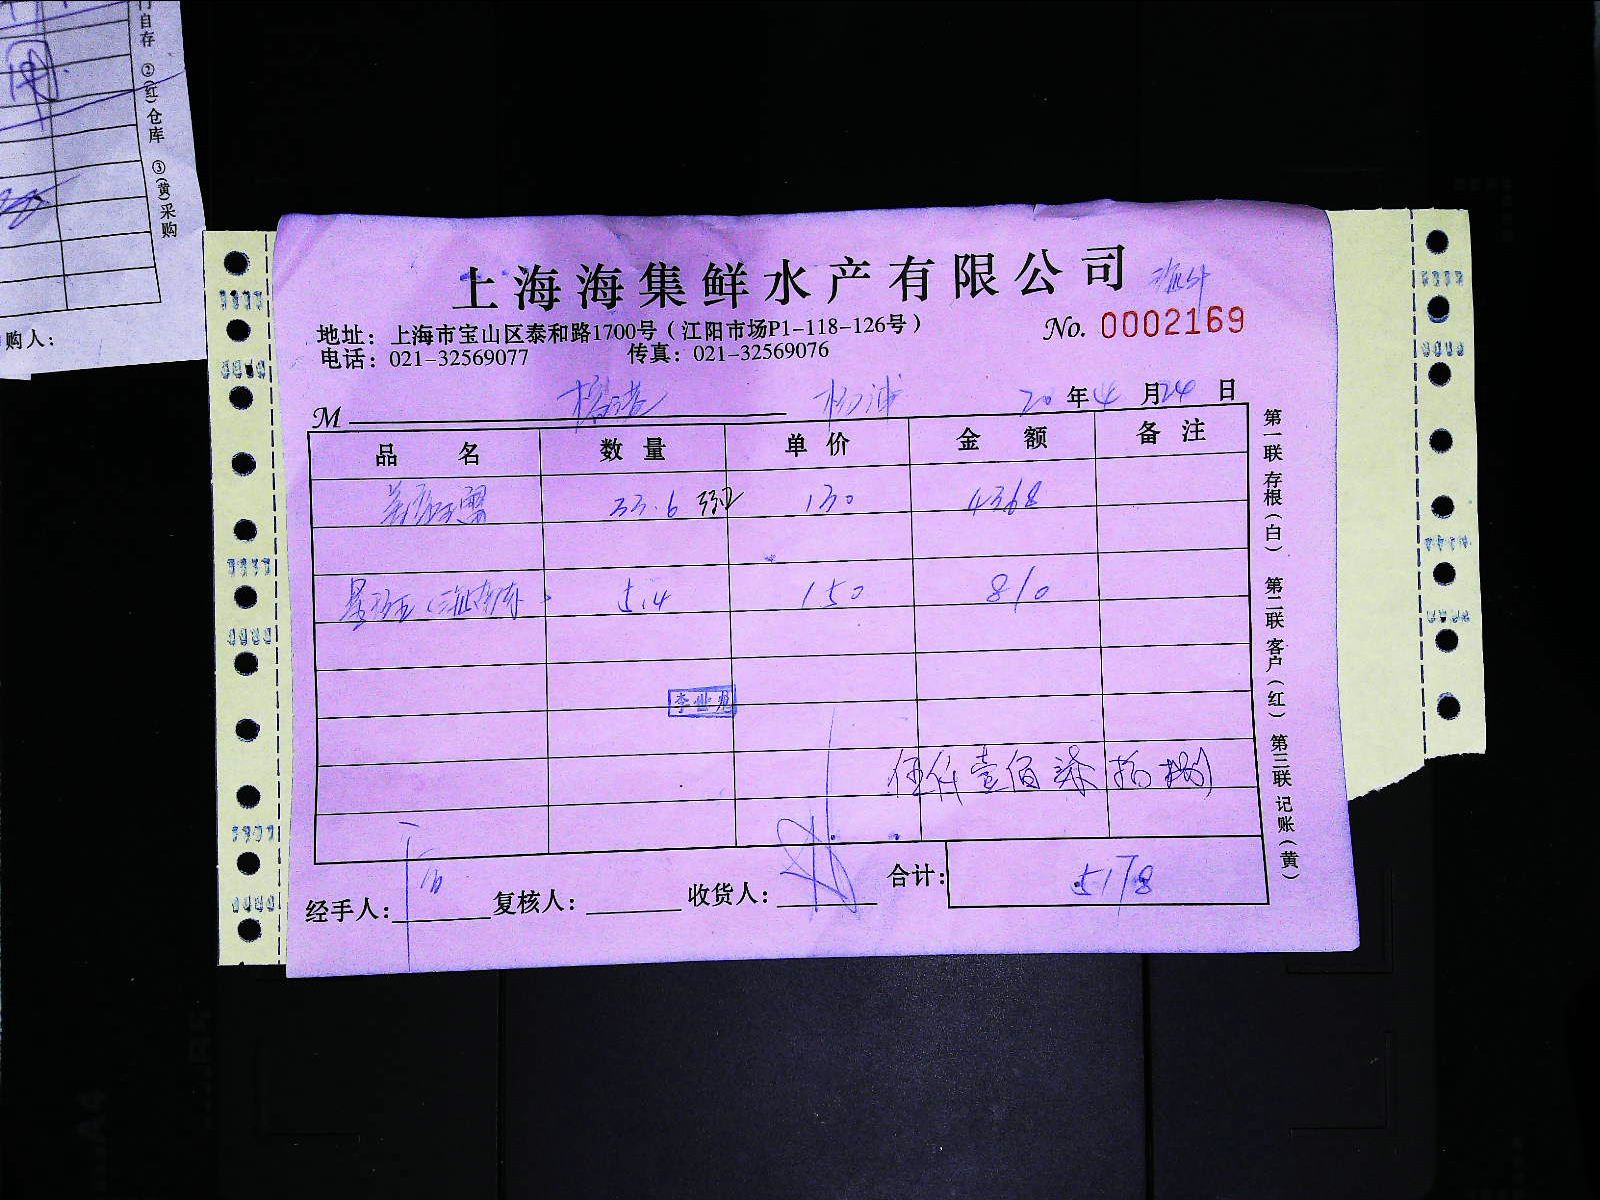 门自存 ②(红)仓库 ③(黄)采购
购人：
上海海集鲜水产有限公司
地址：上海市宝山区泰和路1700号（江阳市场P1-118-126号）
No. 0002169
电话：021-32569077 传真：021-32569076
M 杨浦 20年4月24日
品名 数量 单价 金额 备注
33.6 33.2 130 4368
5.4 150 810
李世龙
伍仟壹佰柒拾捌
合计： 5178
经手人： 复核人： 收货人：
第一联存根（白） 第二联客户（红） 第三联记账（黄）